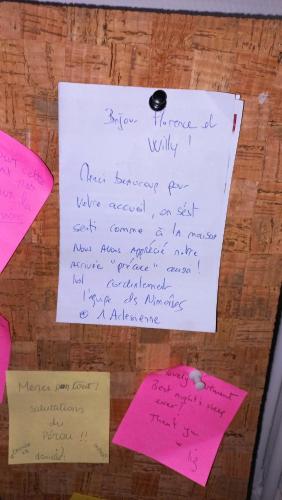 Bonjour Florence et
Willy !
Merci beaucoup pour
votre accueil, on s'est
senti comme à la maison
Nous avons apprécié notre
arrivée "précoce" aussi !
lol cordialement
l'équipe des Nîmoîses
& 1 Arlésienne
Merci pour tout !
salutations
du
Pérou !!
Lovely apartment
Best night's sleep
ever !
Thank you
Liz